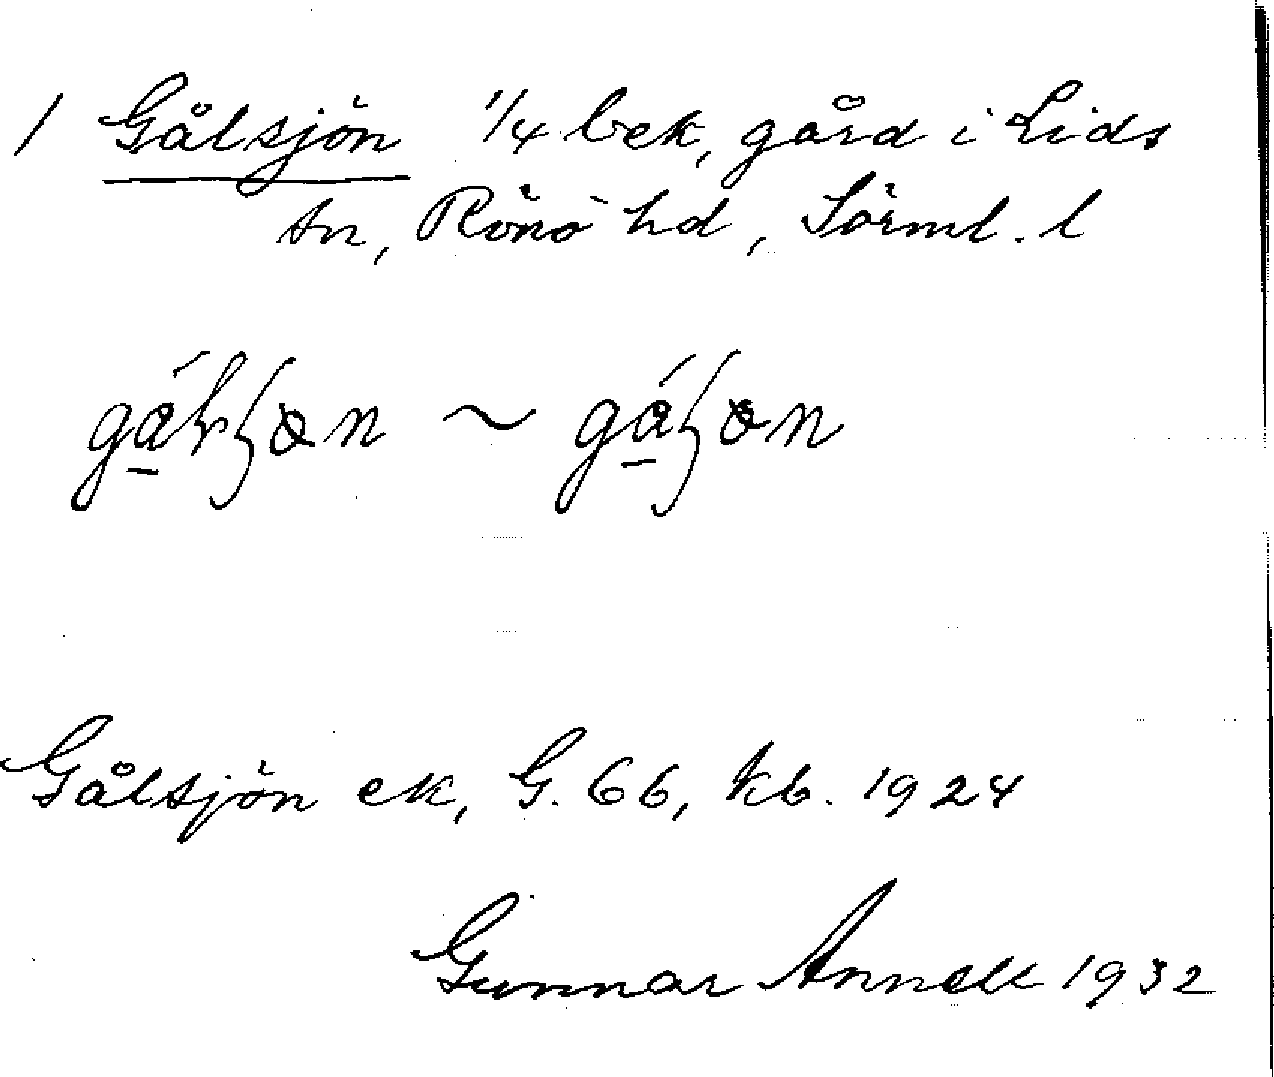 1 Gålsjön 1/4 bek, gård i Lids
sn, Rönö hd, Sörml. l
~
Gålsjön ek, G. 66, kb. 1924
Gunnar Annell 1932